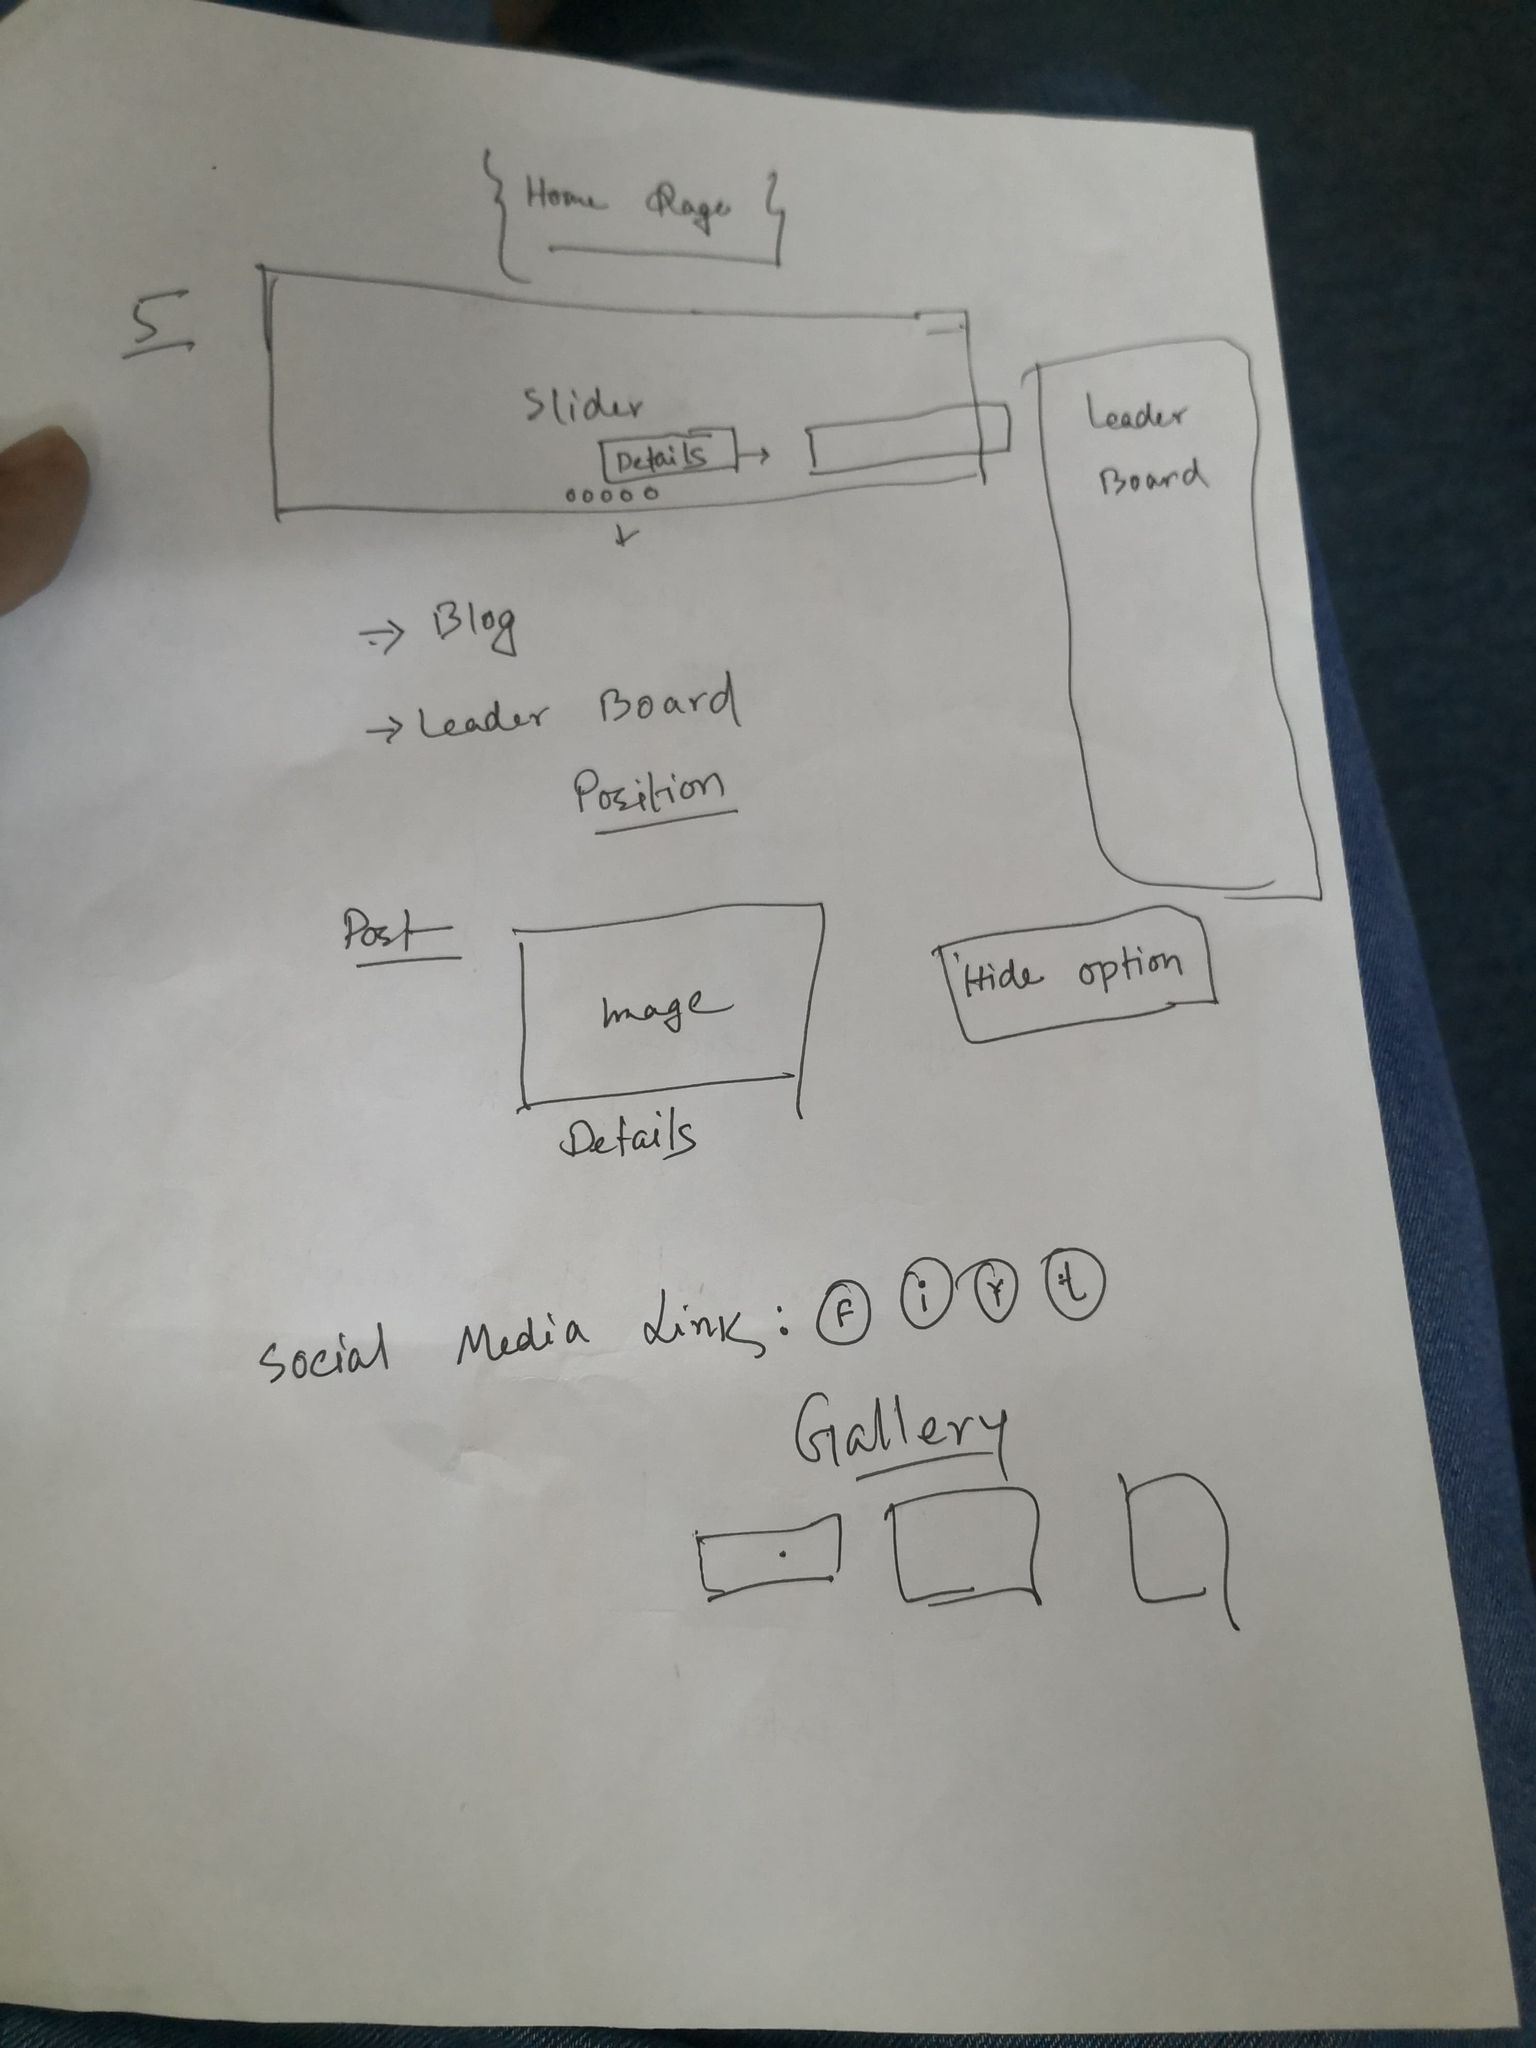 { Home Page }
5
Slider
Details →
Leader
Board
→ Blog
→ Leader Board
Position
Post
Image
Details
Hide option
Social Media Link: F i Y t
Gallery